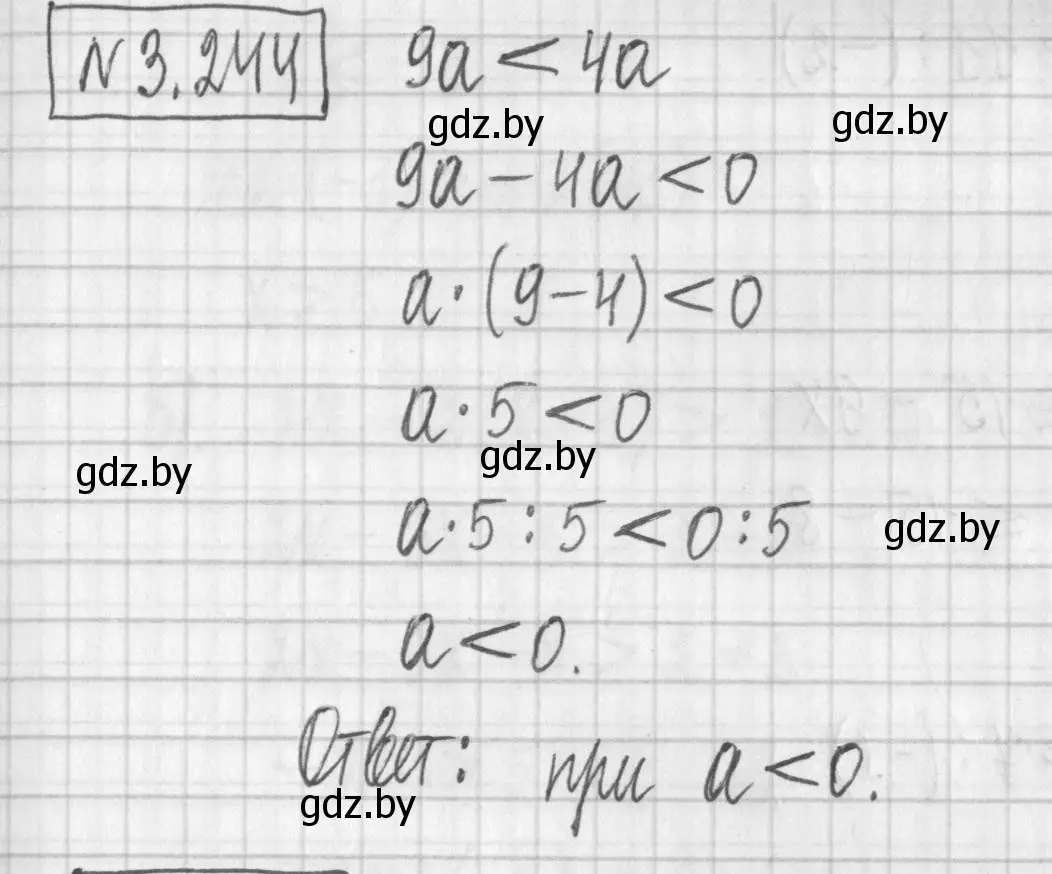 № 3.244 9a < 4a
gdz.by gdz.by
9a − 4a < 0
a · (9 − 4) < 0
a · 5 < 0
gdz.by gdz.by
a · 5 : 5 < 0 : 5
gdz.by
a < 0.
Ответ: при a < 0.
gdz.by